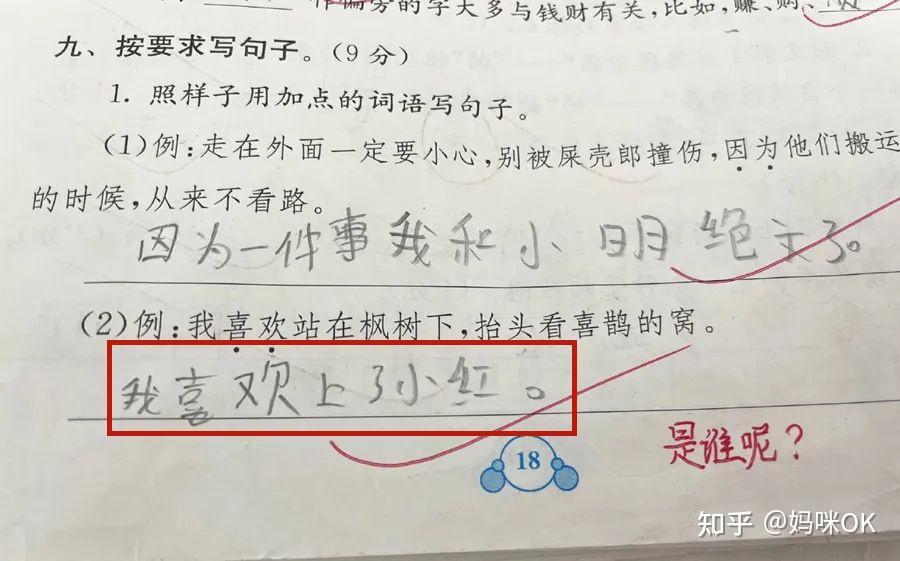 作偏旁的字大多与钱财有关,比如,赚、购、
九、按要求写句子。(9分)
1. 照样子用加点的词语写句子。
(1)例:走在外面一定要小心,别被屎壳郎撞伤,因为他们搬运
的时候,从来不看路。
因为一件事我和小明绝交了。
(2)例:我喜欢站在枫树下,抬头看喜鹊的窝。
我喜欢上了小红。
是谁呢?
18
知乎 @妈咪OK